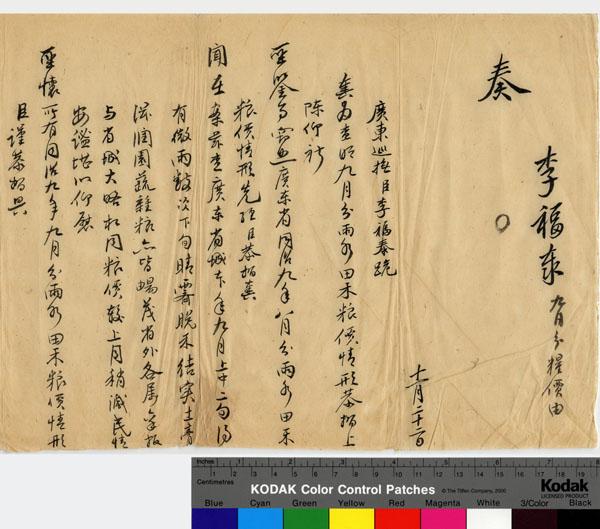 李福泰 九月分糧價由
奏
十一月二十二日
廣東巡撫臣李福泰跪
奏爲查明九月分雨水田禾粮價情形恭摺上
陳仰祈
聖鑒事竊照廣東省同治九年八月分雨水田禾
粮價情形先經臣恭摺奏
聞在案茲查廣東省城本年九月上中二旬得
有微雨數次下旬晴霽晚禾結实土膏
滋潤園蔬雜粮亦皆暢茂省外各属具报
与省城大略相同粮價較上月稍減民情
安謐堪以仰慰
聖懷所有同治九年九月分雨水田禾粮價情形
臣謹恭摺具
Inches 1 2 3 4 5 6 7 8
Centimetres 1 2 3 4 5 6 7 8 9 10 11 12 13 14 15 16 17 18 19
KODAK Color Control Patches
© The Tiffen Company, 2000
Kodak
LICENSED PRODUCT
Blue Cyan Green Yellow Red Magenta White 3/Color Black